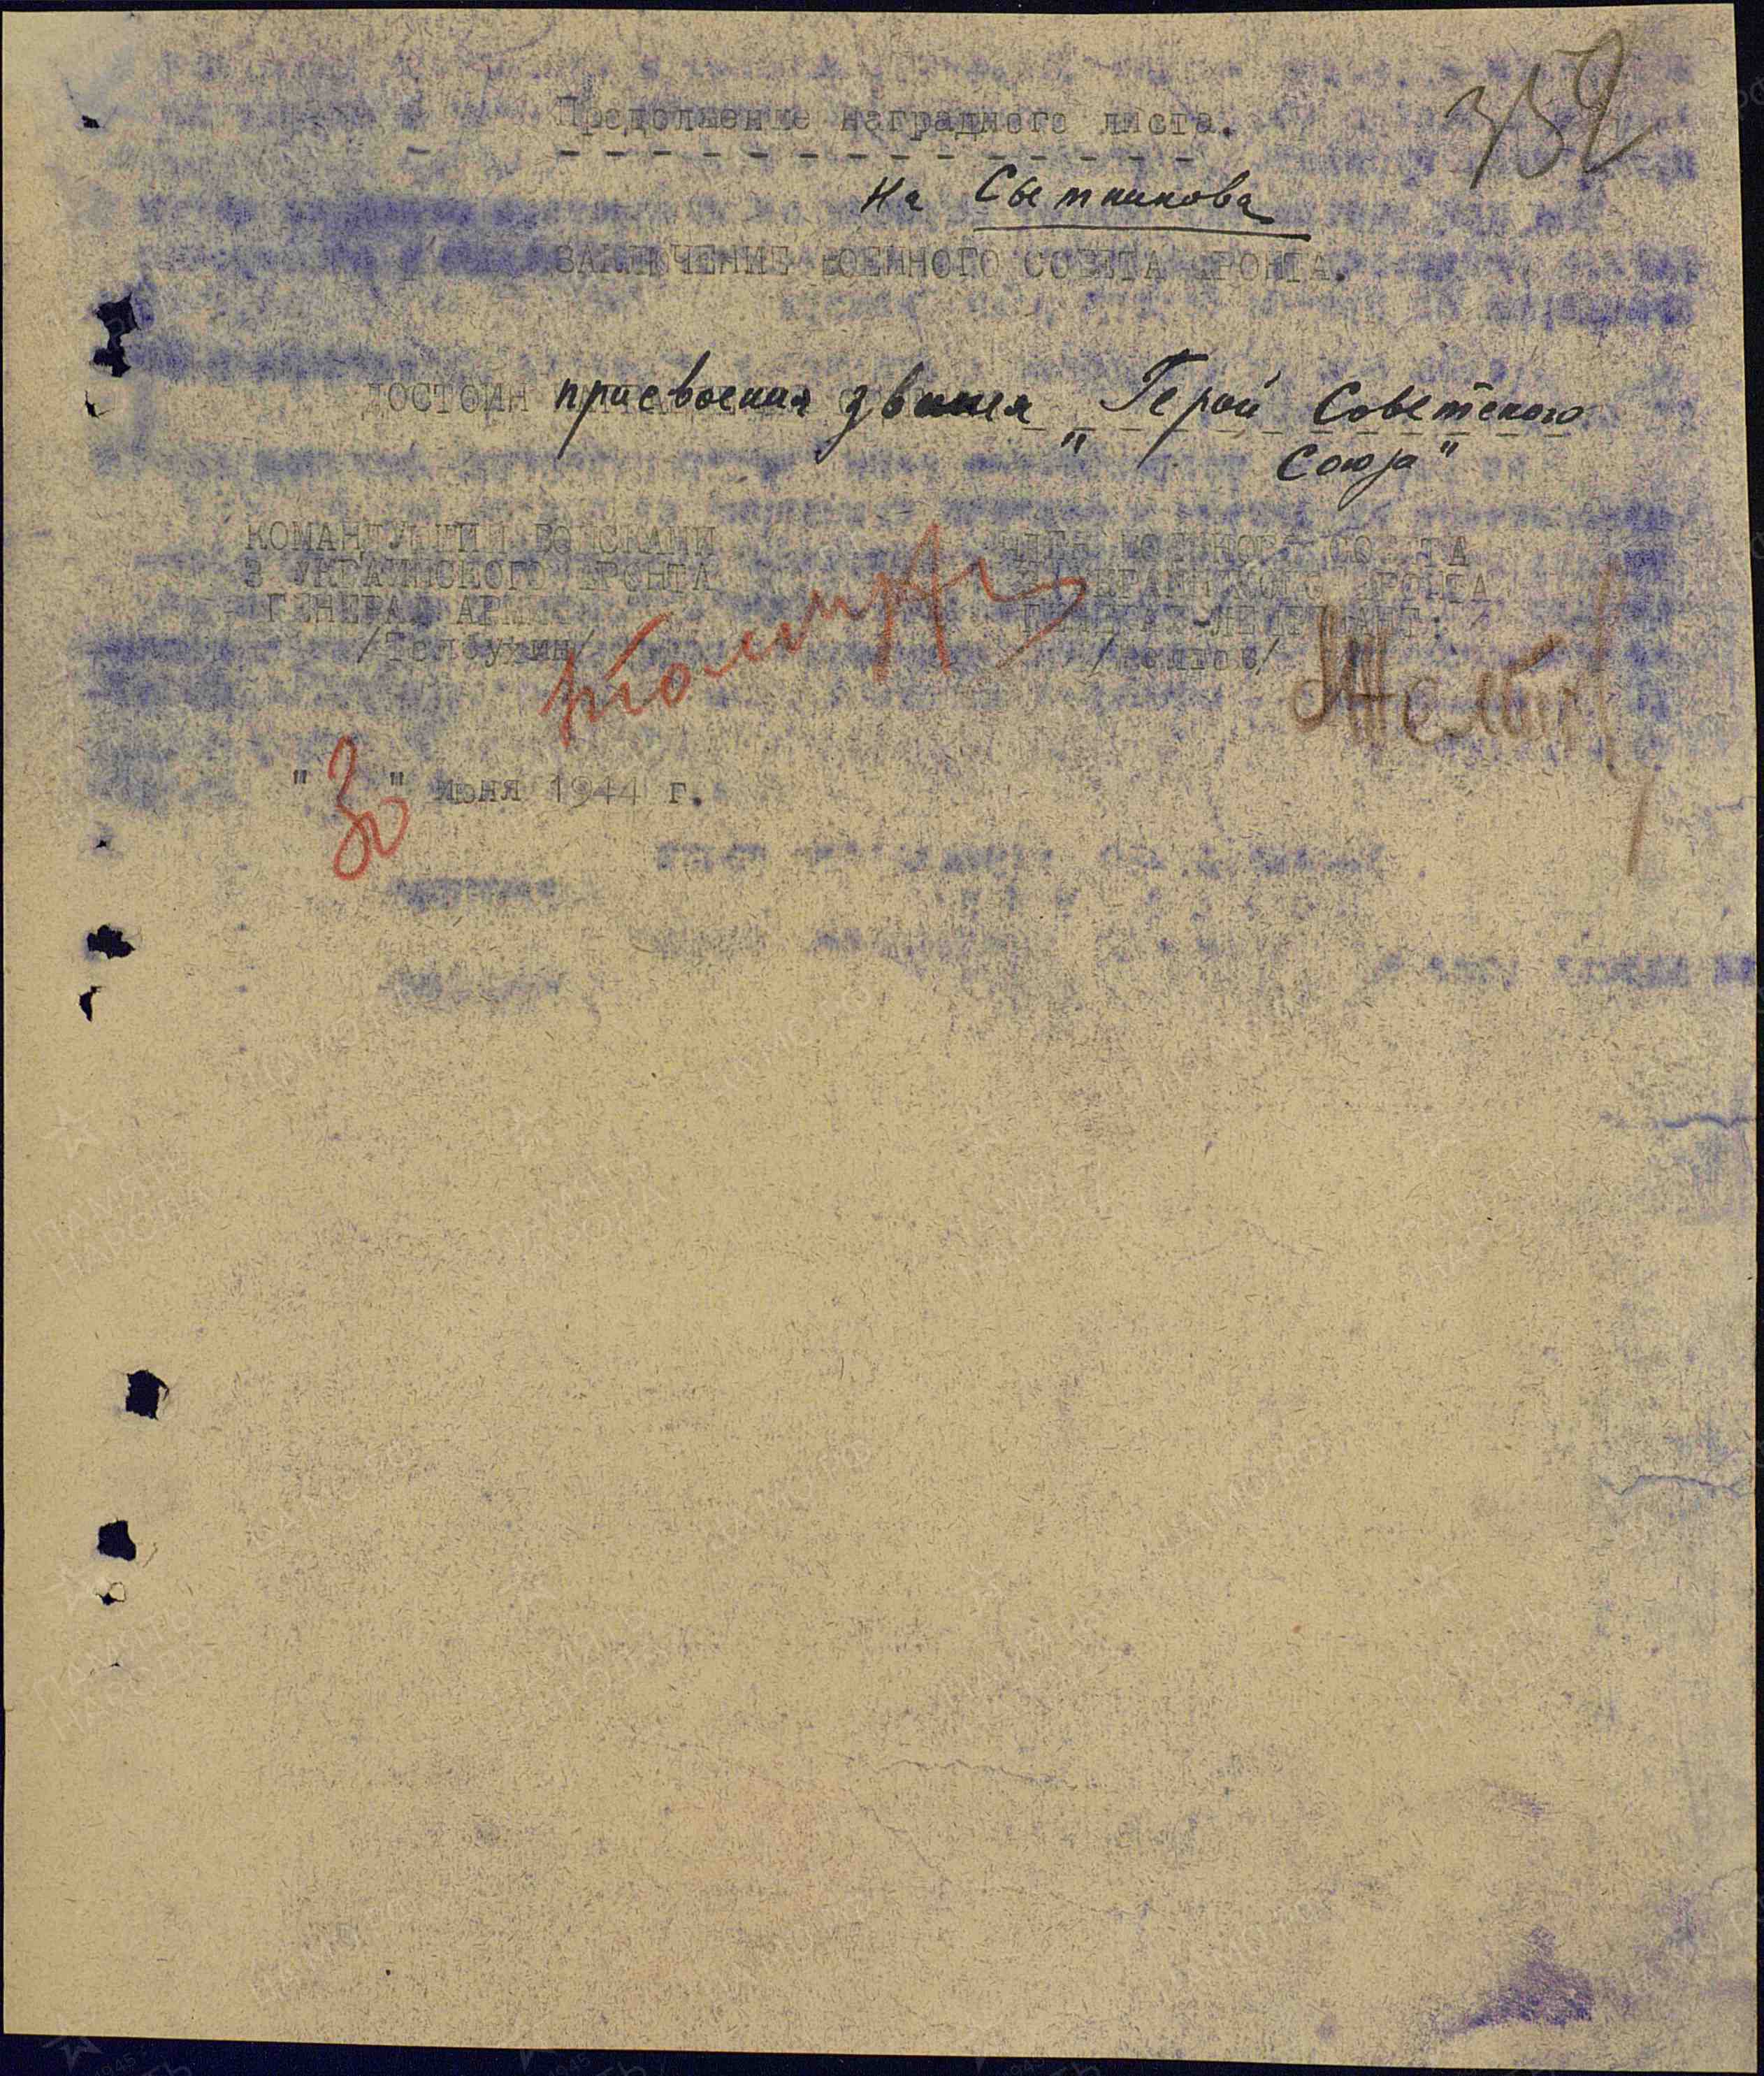 352
Продолжение наградного листа.
на Сытникова
ЗАКЛЮЧЕНИЕ ВОЕННОГО СОВЕТА ФРОНТА.
ДОСТОИН присвоения звания „Герой Советского
Союза"
КОМАНДУЮЩИЙ ВОЙСКАМИ
3 УКРАИНСКОГО ФРОНТА
ГЕНЕРАЛ АРМИИ
/Толбухин/
ЧЛЕН ВОЕННОГО СОВЕТА
3 УКРАИНСКОГО ФРОНТА
ГЕНЕРАЛ-ЛЕЙТЕНАНТ
/Желтов/
"30" июня 1944 г.
ПАМЯТЬ
НАРОДА
ЦАМО.РФ